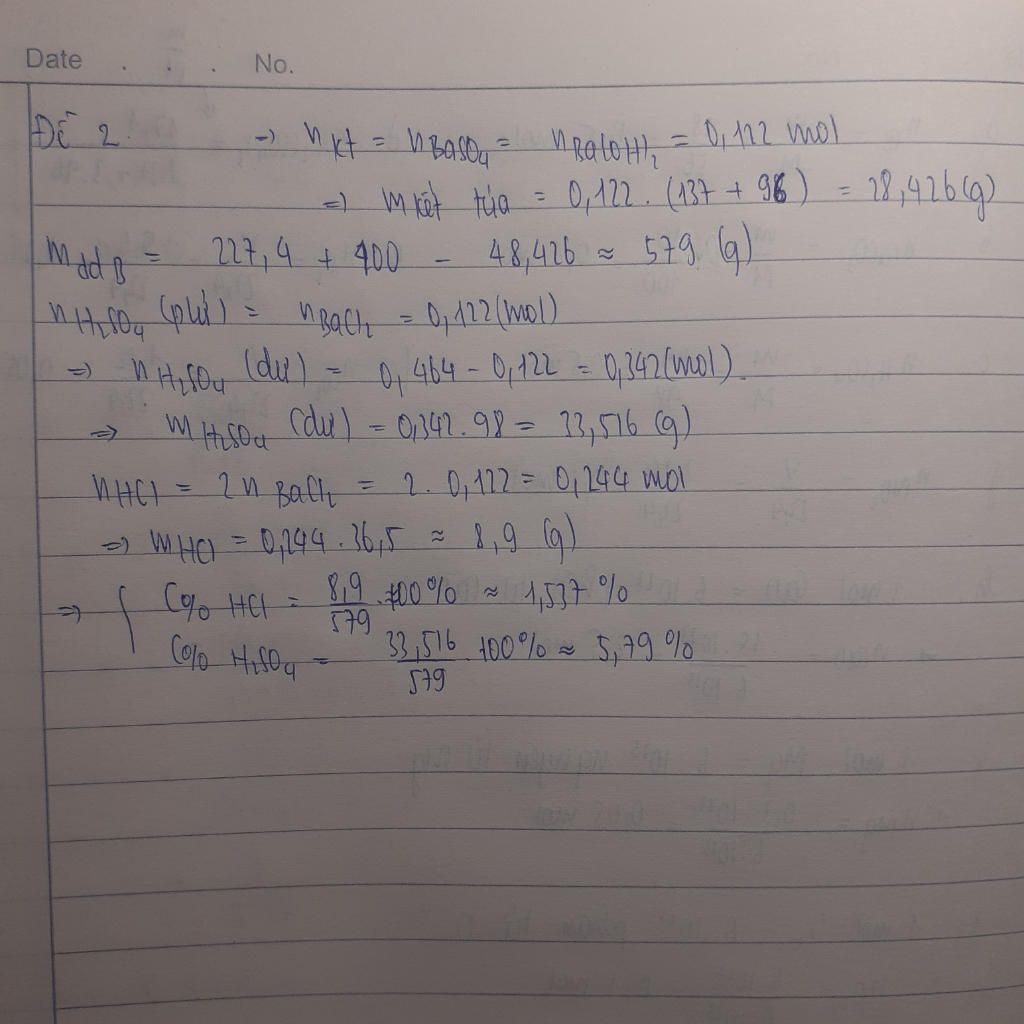 Date . . . No.
Đề 2. → n kt = n BaSO4 = n Ba(OH)2 = 0,122 mol
=> m kết tủa = 0,122 . (137 + 96) = 28,426 (g)
m dd B = 227,4 + 400 - 48,426 ≈ 579 (g)
n H2SO4 (pứ) = n BaCl2 = 0,122 (mol)
=> n H2SO4 (dư) = 0,464 - 0,122 = 0,342 (mol).
=> m H2SO4 (dư) = 0,342 . 98 = 33,516 (g)
n HCl = 2 n BaCl2 = 2 . 0,122 = 0,244 mol
=> m HCl = 0,244 . 36,5 ≈ 8,9 (g)
=> { C% HCl = 8,9/579 . 100% ≈ 1,537 %
C% H2SO4 = 33,516/579 . 100% ≈ 5,79 %